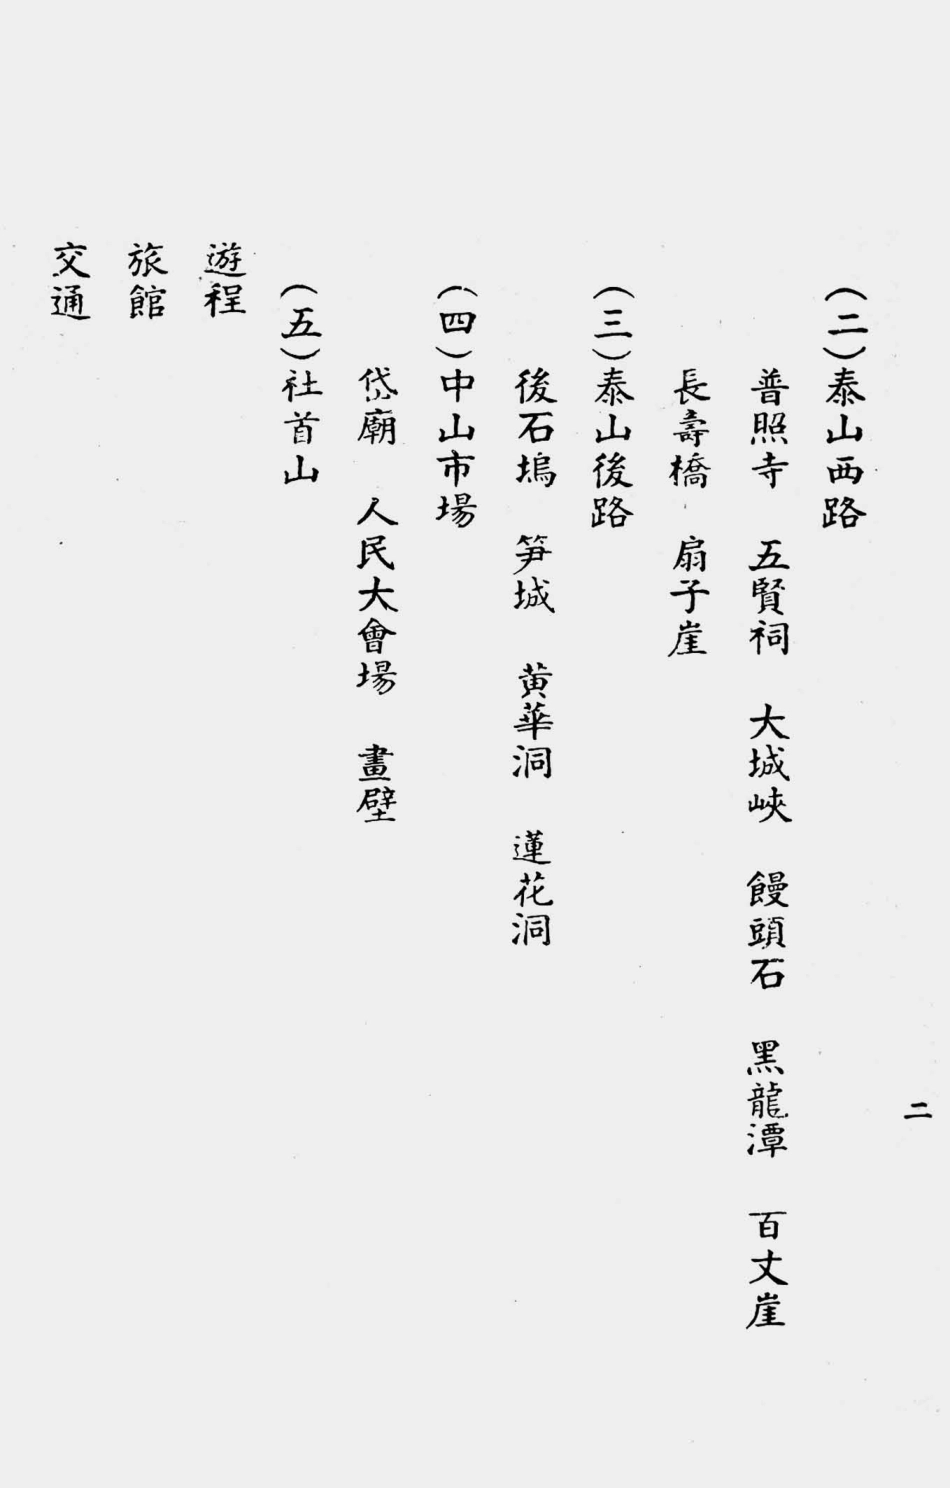 二
（二）泰山西路
普照寺　五賢祠　大城峽　饅頭石　黑龍潭　百丈崖
長壽橋　扇子崖
（三）泰山後路
後石塢　笋城　黄華洞　蓮花洞
（四）中山市場
岱廟　人民大會場　畫壁
（五）社首山
遊程
旅館
交通